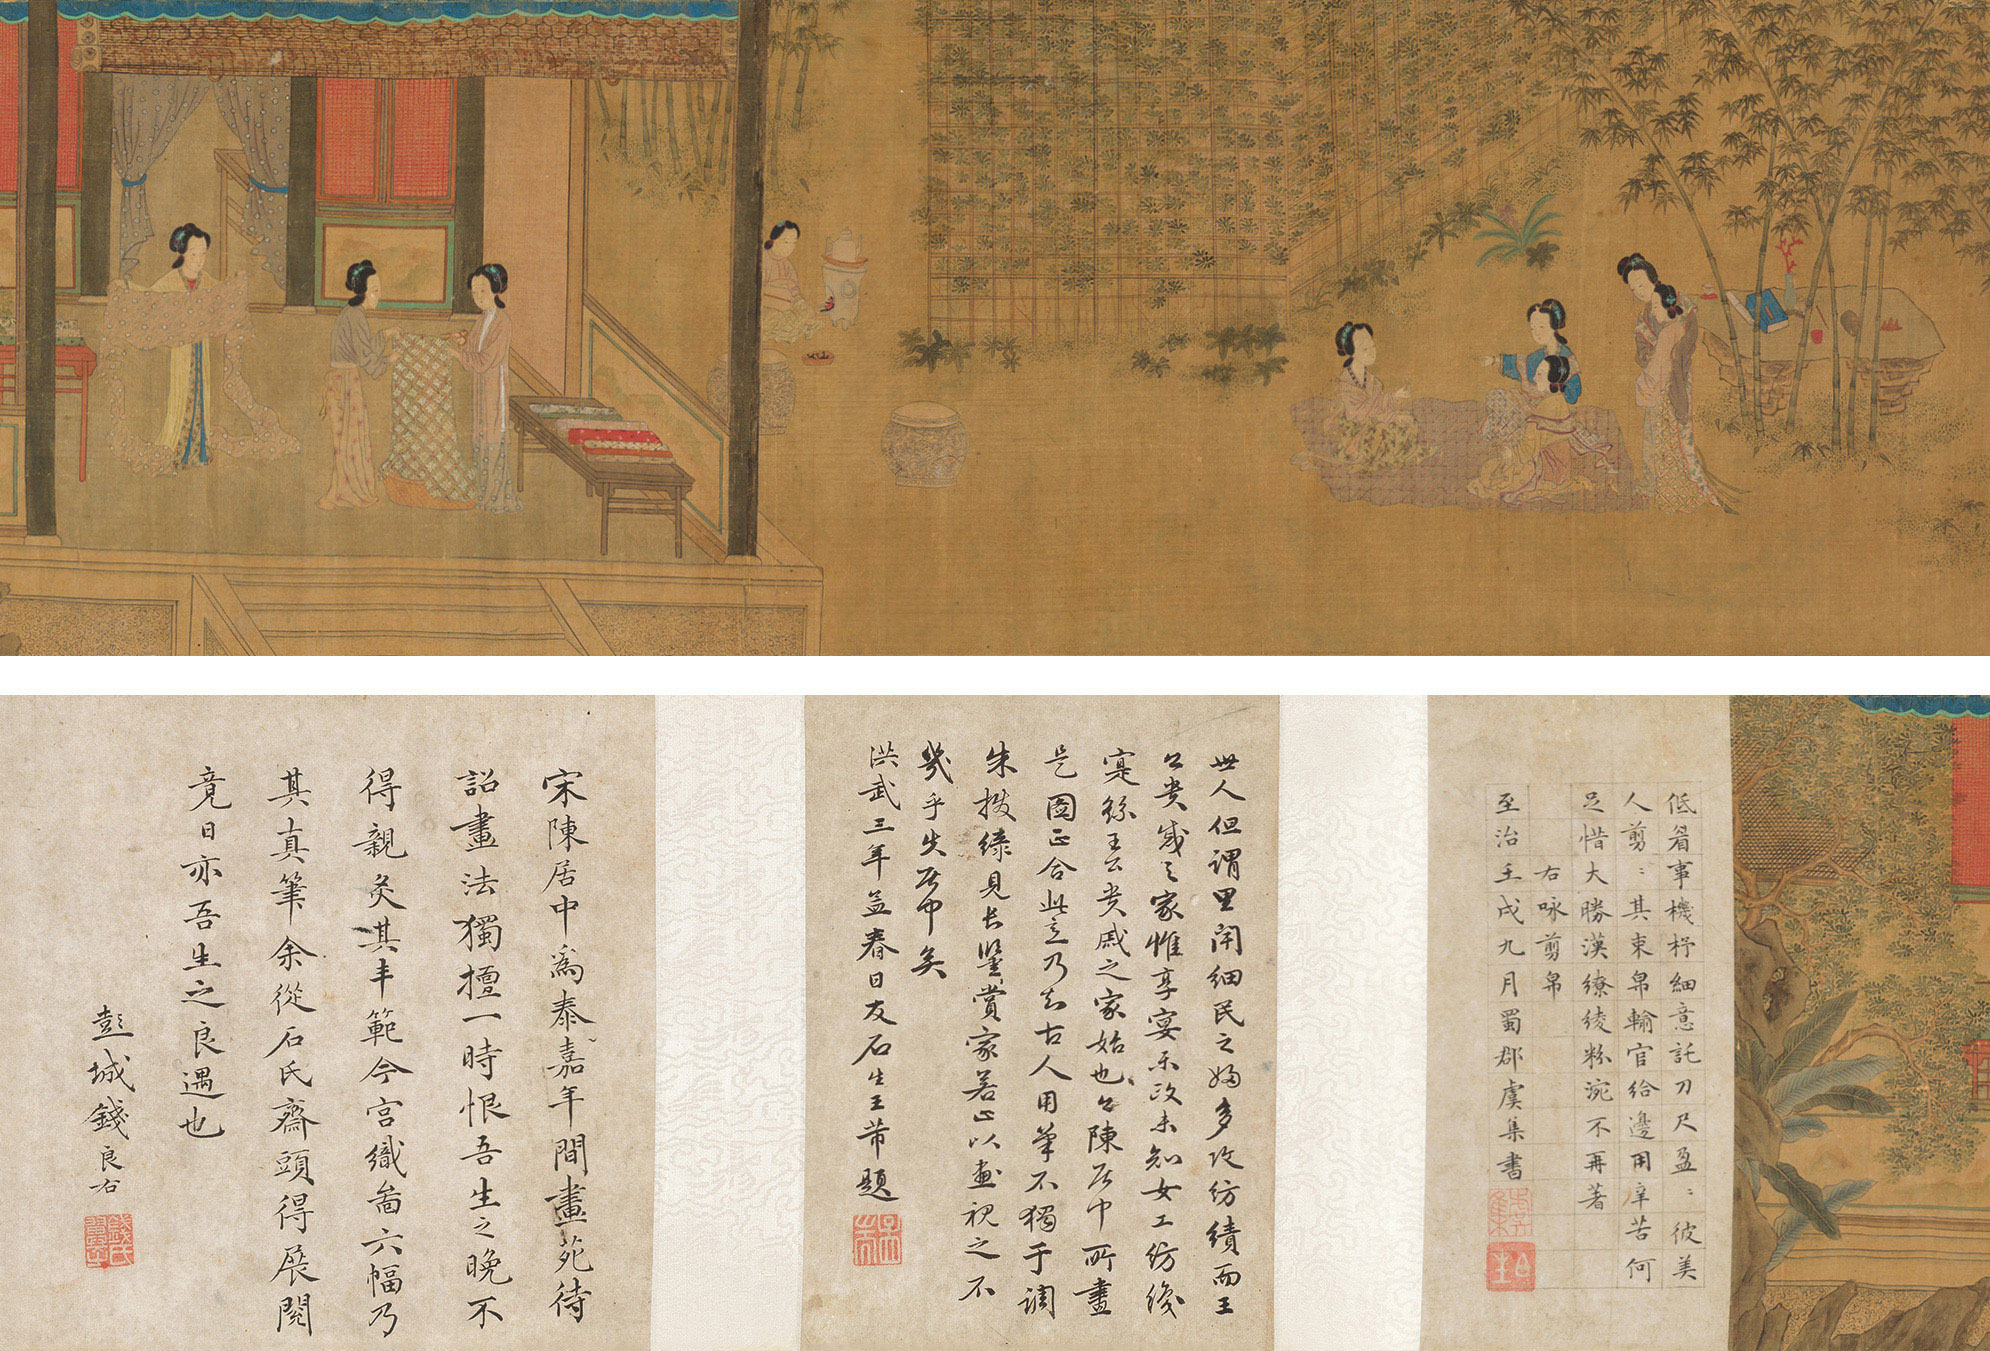 低眉事機杼細意託刀尺盈〻彼美
人剪〻其束帛輸官給邊用辛苦何
足惜大勝漢繚綾粉涴不再著
右咏剪帛
至治壬戌九月蜀郡虞集書
世人但謂里閈細民之婦多攻紡績而王
公貴戚之家惟享宴樂改未知女工紡織
寔繇王公貴戚之家始也今陳居中所畫
是圖正合此意乃知古人用筆不獨于調
朱撥綠見長鑒賞家若止以畫視之不
幾乎失居中矣
洪武三年孟春日友石生王芾題
宋陳居中為泰嘉年間畫苑待
詔畫法獨擅一時恨吾生之晚不
得親炙其丰範今宮織啚六幅乃
其真筆余從石氏齋頭得展閱
竟日亦吾生之良遇也
彭城錢良右